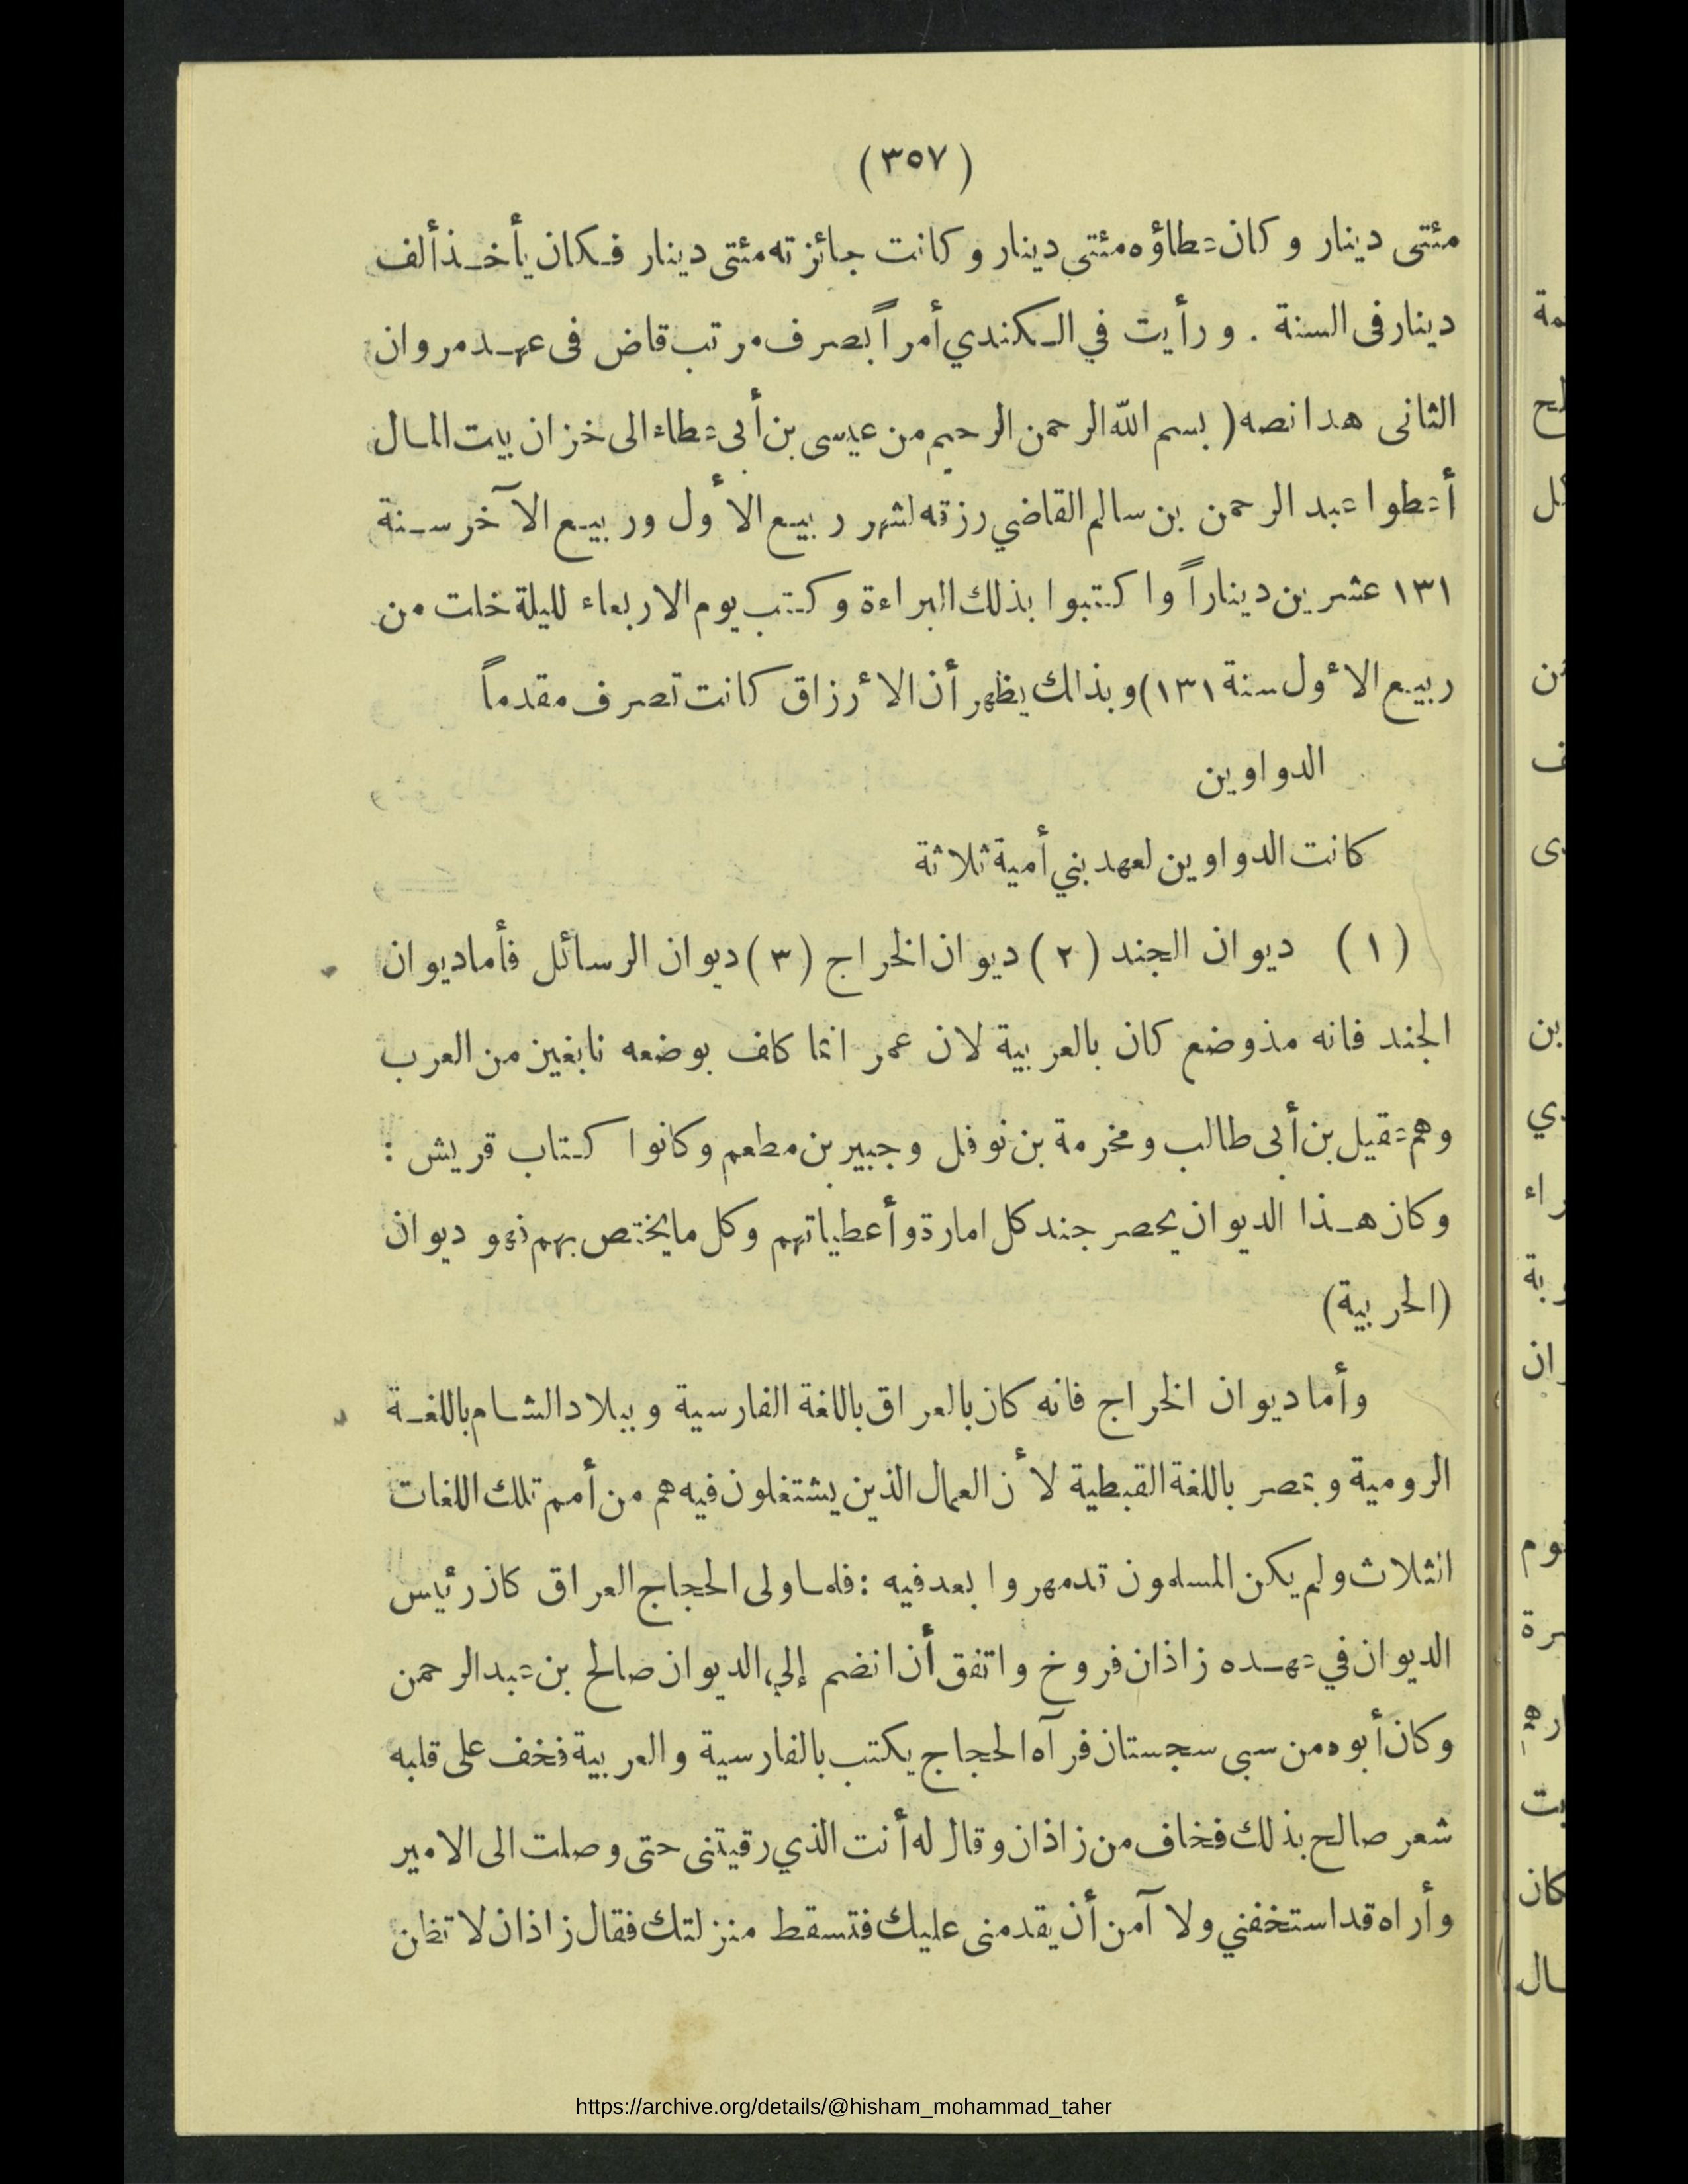 (٣٥٧)
مئتى دينار وكان عطاؤه مئتى دينار وكانت جائزته مئتى دينار فكان يأخذ ألف
دينار فى السنة . ورأيت في الكندي أمراً بصرف مرتب قاض فى عهد مروان
الثانى هذا نصه ( بسم الله الرحمن الرحيم من عيسى بن أبى عطاء الى خزان بيت المال
أعطوا عبد الرحمن بن سالم القاضي رزقه لشهر ربيع الأول وربيع الآخر سنة
١٣١ عشرين ديناراً واكتبوا بذلك البراءة وكتب يوم الاربعاء لليلة خلت من
ربيع الأول سنة ١٣١) وبذلك يظهر أن الأرزاق كانت تصرف مقدماً
الدواوين
كانت الدواوين لعهد بني أمية ثلاثة
(١) ديوان الجند (٢) ديوان الخراج (٣) ديوان الرسائل فأما ديوان
الجند فانه مذ وضع كان بالعربية لان عمر انما كلف بوضعه نابغين من العرب
وهم عقيل بن أبى طالب ومخرمة بن نوفل وجبير بن مطعم وكانوا كتاب قريش :
وكان هذا الديوان يحصر جند كل امارة وأعطياتهم وكل ما يختص بهم فهو ديوان
(الحربية)
وأما ديوان الخراج فانه كان بالعراق باللغة الفارسية وببلاد الشام باللغة
الرومية وبمصر باللغة القبطية لأن العمال الذين يشتغلون فيه هم من أمم تلك اللغات
الثلاث ولم يكن المسلمون قد مهروا بعد فيه : فلما ولى الحجاج العراق كان رئيس
الديوان في عهده زاذان فروخ واتفق أن انضم إلى الديوان صالح بن عبد الرحمن
وكان أبوه من سبى سجستان فرآه الحجاج يكتب بالفارسية والعربية فخف على قلبه
شعر صالح بذلك فخاف من زاذان وقال له أنت الذي رقيتنى حتى وصلت الى الامير
وأراه قد استخفني ولا آمن أن يقدمنى عليك فتسقط منزلتك فقال زاذان لا تظن
https://archive.org/details/@hisham_mohammad_taher